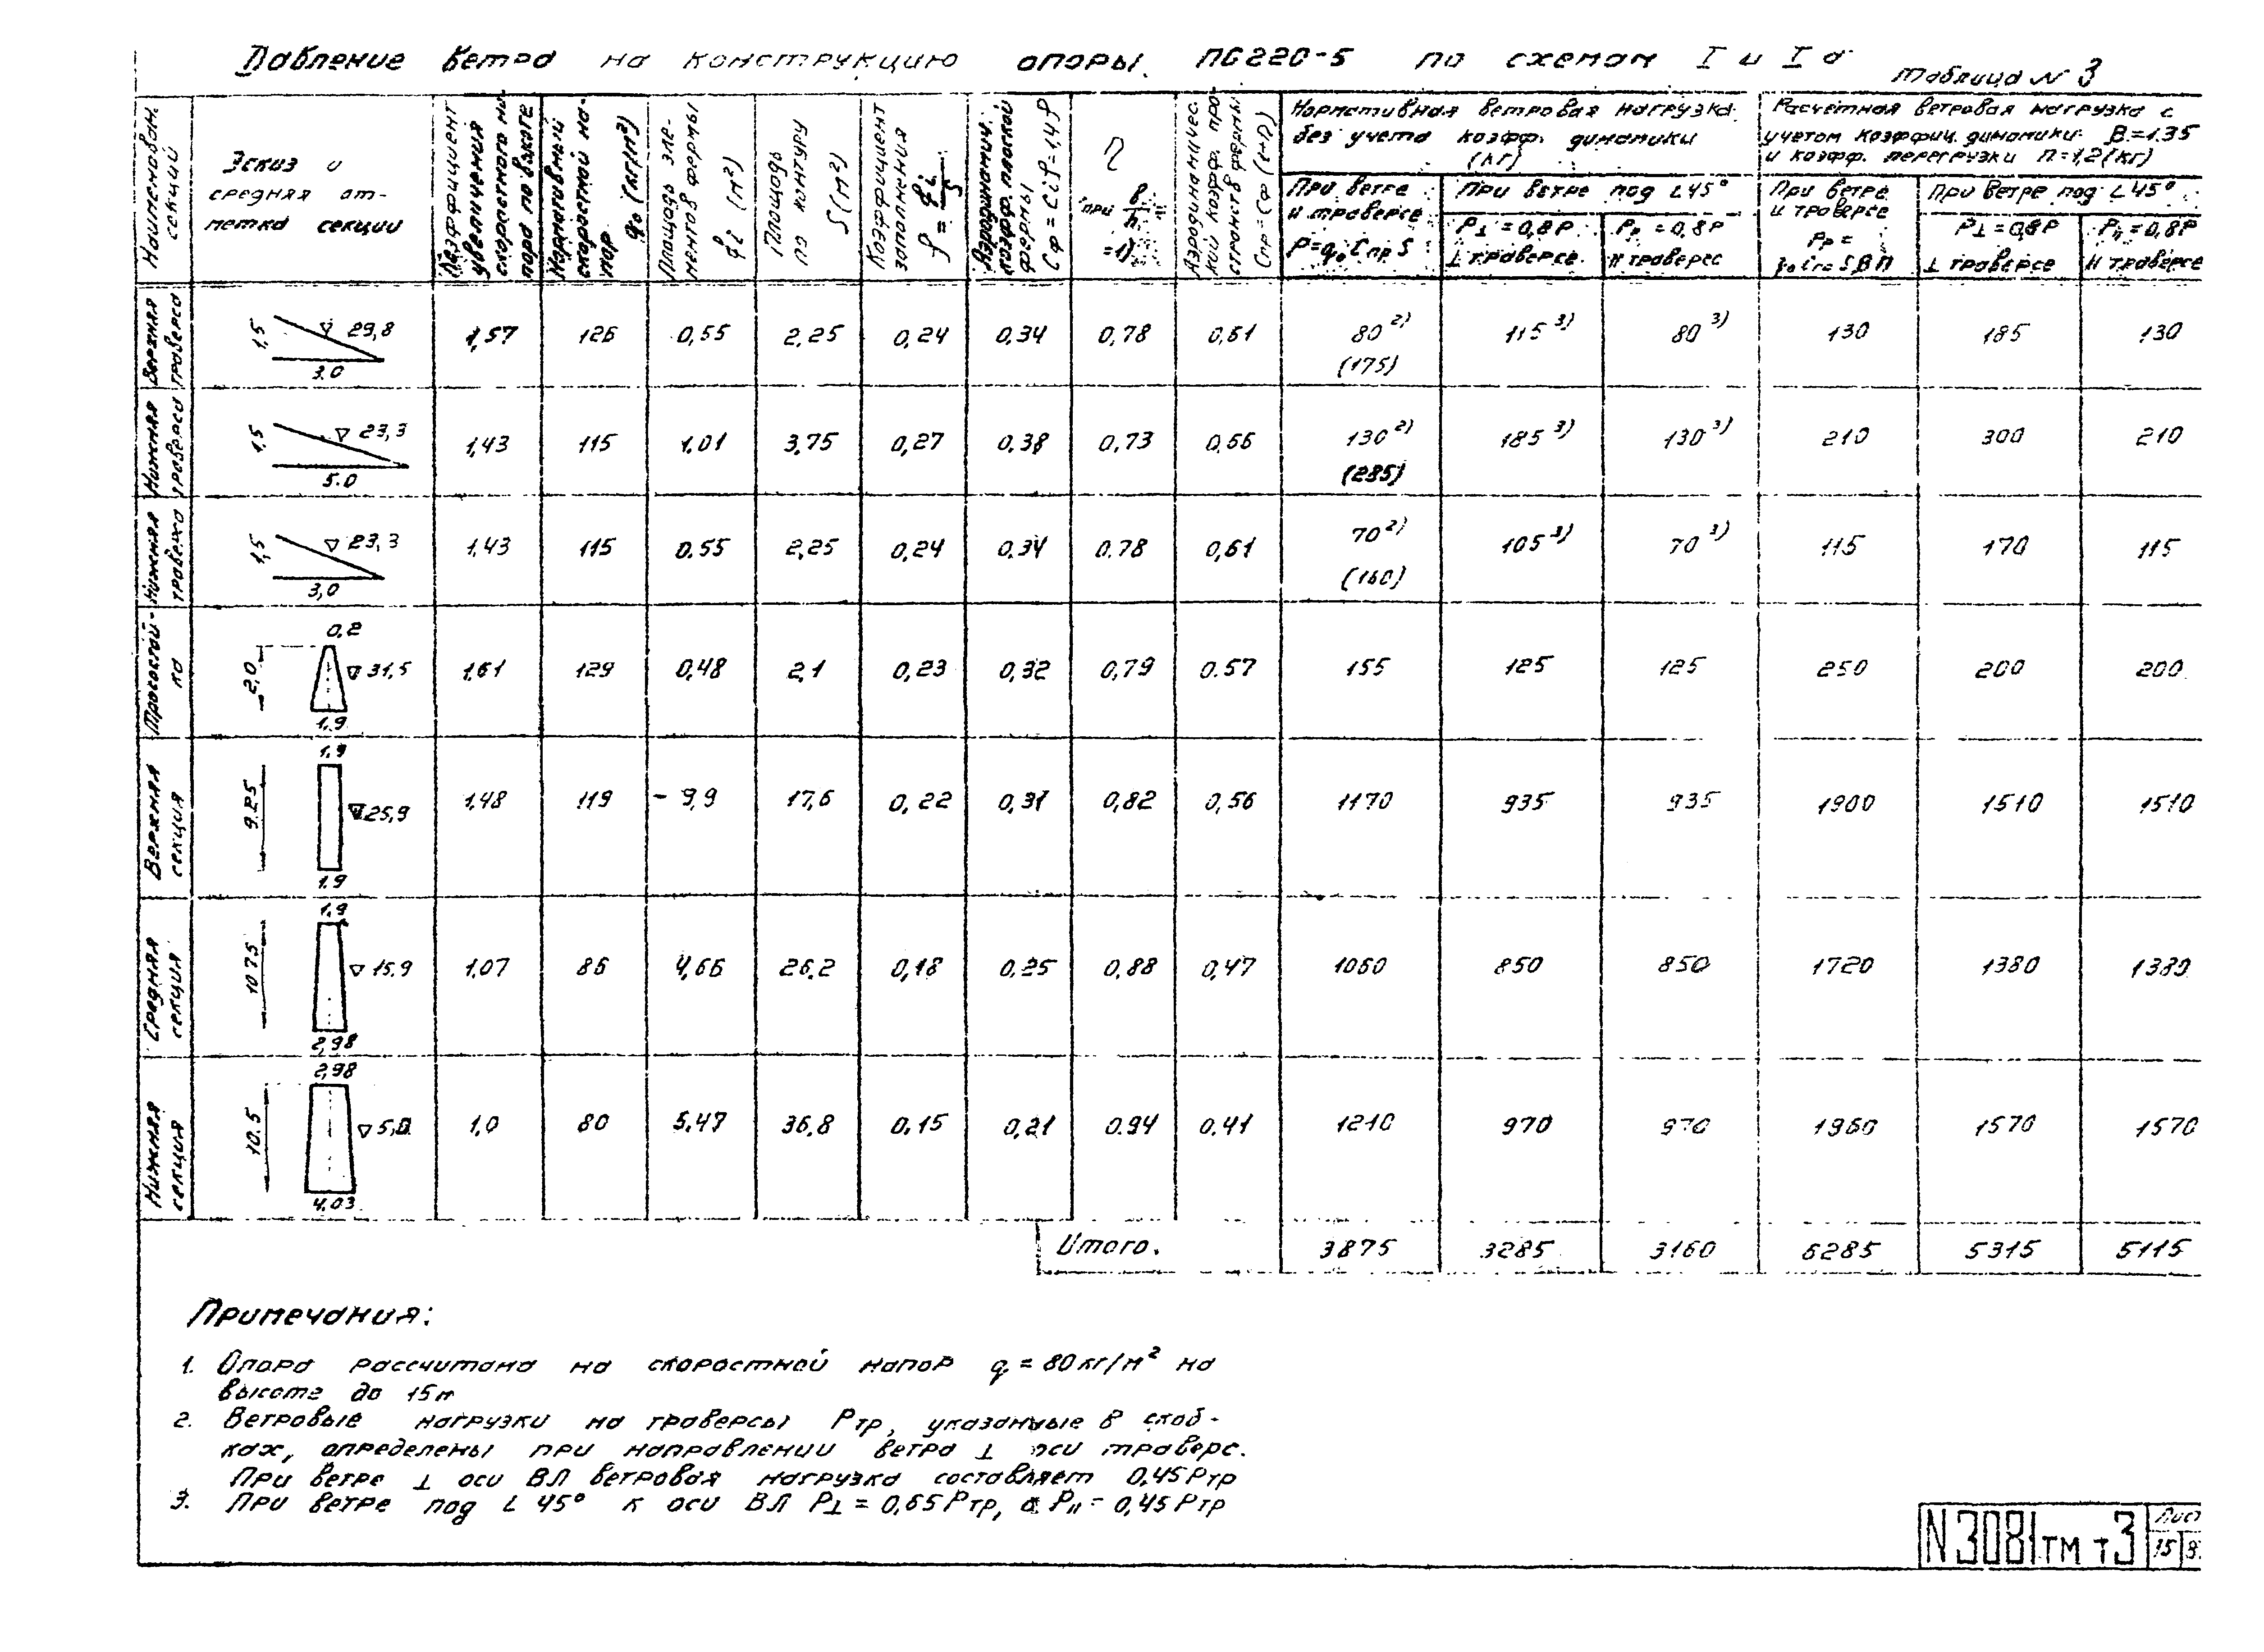 Давление ветра на конструкцию опоры ПС220-5 по схемам I и Iа
таблица N 3
Наименован. секций
Эскиз и
средняя от-
метка секции
Коэффициент
увеличения
скоростного на-
пора по высоте
Нормативный
скоростной на-
пор
q₀ (кг/м²)
Площадь эле-
ментов фермы
fi (м²)
Площадь
по контуру
S (м²)
Коэффициент
заполнения
f = fi / S
Аэродинамич.
коэфф. плоской
фермы
Cф = Ci f = 1,4 f
η
при в/h =
=1)
Аэродинамичес.
кий коэфф. про-
странств фермы
Спр = Сф (1+η)
Нормативная ветровая нагрузка
без учета коэфф. динамики
(кг)
При ветре
II траверсе
P=q₀ Cпр S
При ветре под L 45°
P⊥ = 0,8 P
⊥ траверсе
P₁₁ = 0,8 P
II траверсе
Расчётная ветровая нагрузка с
учетом коэффиц. динамики B=1.35
и коэфф. перегрузки n=1,2 (кг)
При ветре
II траверсе
Pр =
q₀ Cпр S B n
При ветре под L 45°
P⊥ = 0,8 P
⊥ траверсе
P₁₁ = 0,8 P
II траверсе
Верхняя траверса 1,5 ▽ 29,8 3.0 1,57 126 0,55 2,25 0,24 0,34 0,78 0,61 80²⁾ (175) 115³⁾ 80³⁾ 130 185 130
Нижняя траверса 1,5 ▽ 23,3 5.0 1,43 115 1.01 3,75 0,27 0,38 0,73 0,66 130²⁾ (285) 185³⁾ 130³⁾ 210 300 210
Нижняя 1,5 ▽ 23,3 3,0 1,43 115 0.55 2,25 0,24 0,34 0.78 0,61 70²⁾ (160) 105³⁾ 70³⁾ 115 170 115
Тросостой-
ка 0,2 2,0 ▽ 31,5 1.9 1,61 129 0,48 2,1 0,23 0,32 0,79 0.57 155 125 125 250 200 200
Верхняя секция 1.9 9.25 ▽ 25,9 1.9 1,48 119 9,9 17,6 0,22 0,31 0,82 0,56 1170 935 935 1900 1510 1510
Средняя секция 1,9 10.75 ▽ 15.9 2,98 1,07 86 4,66 26,2 0,18 0,25 0,88 0,47 1060 850 850 1720 1380 1380
Нижняя секция 2,98 10.5 ▽ 5,0 4.03 1,0 80 5.47 36,8 0,15 0,21 0.94 0.41 1210 970 970 1960 1570 1570
Итого. 3875 3285 3160 6285 5315 5115
Примечания:
1. Опора рассчитана на скоростной напор q = 80 кг/м² на
высоте до 15 м
2. Ветровые нагрузки на траверсы Pтр, указанные в скоб-
ках, определены при направлении ветра ⊥ оси траверс.
При ветре ⊥ оси ВЛ ветровая нагрузка составляет 0,45 Pтр
3. При ветре под L 45° к оси ВЛ P⊥ = 0,65 Pтр, а P₁₁ = 0,45 Pтр
N3081тм т3
Лист
15